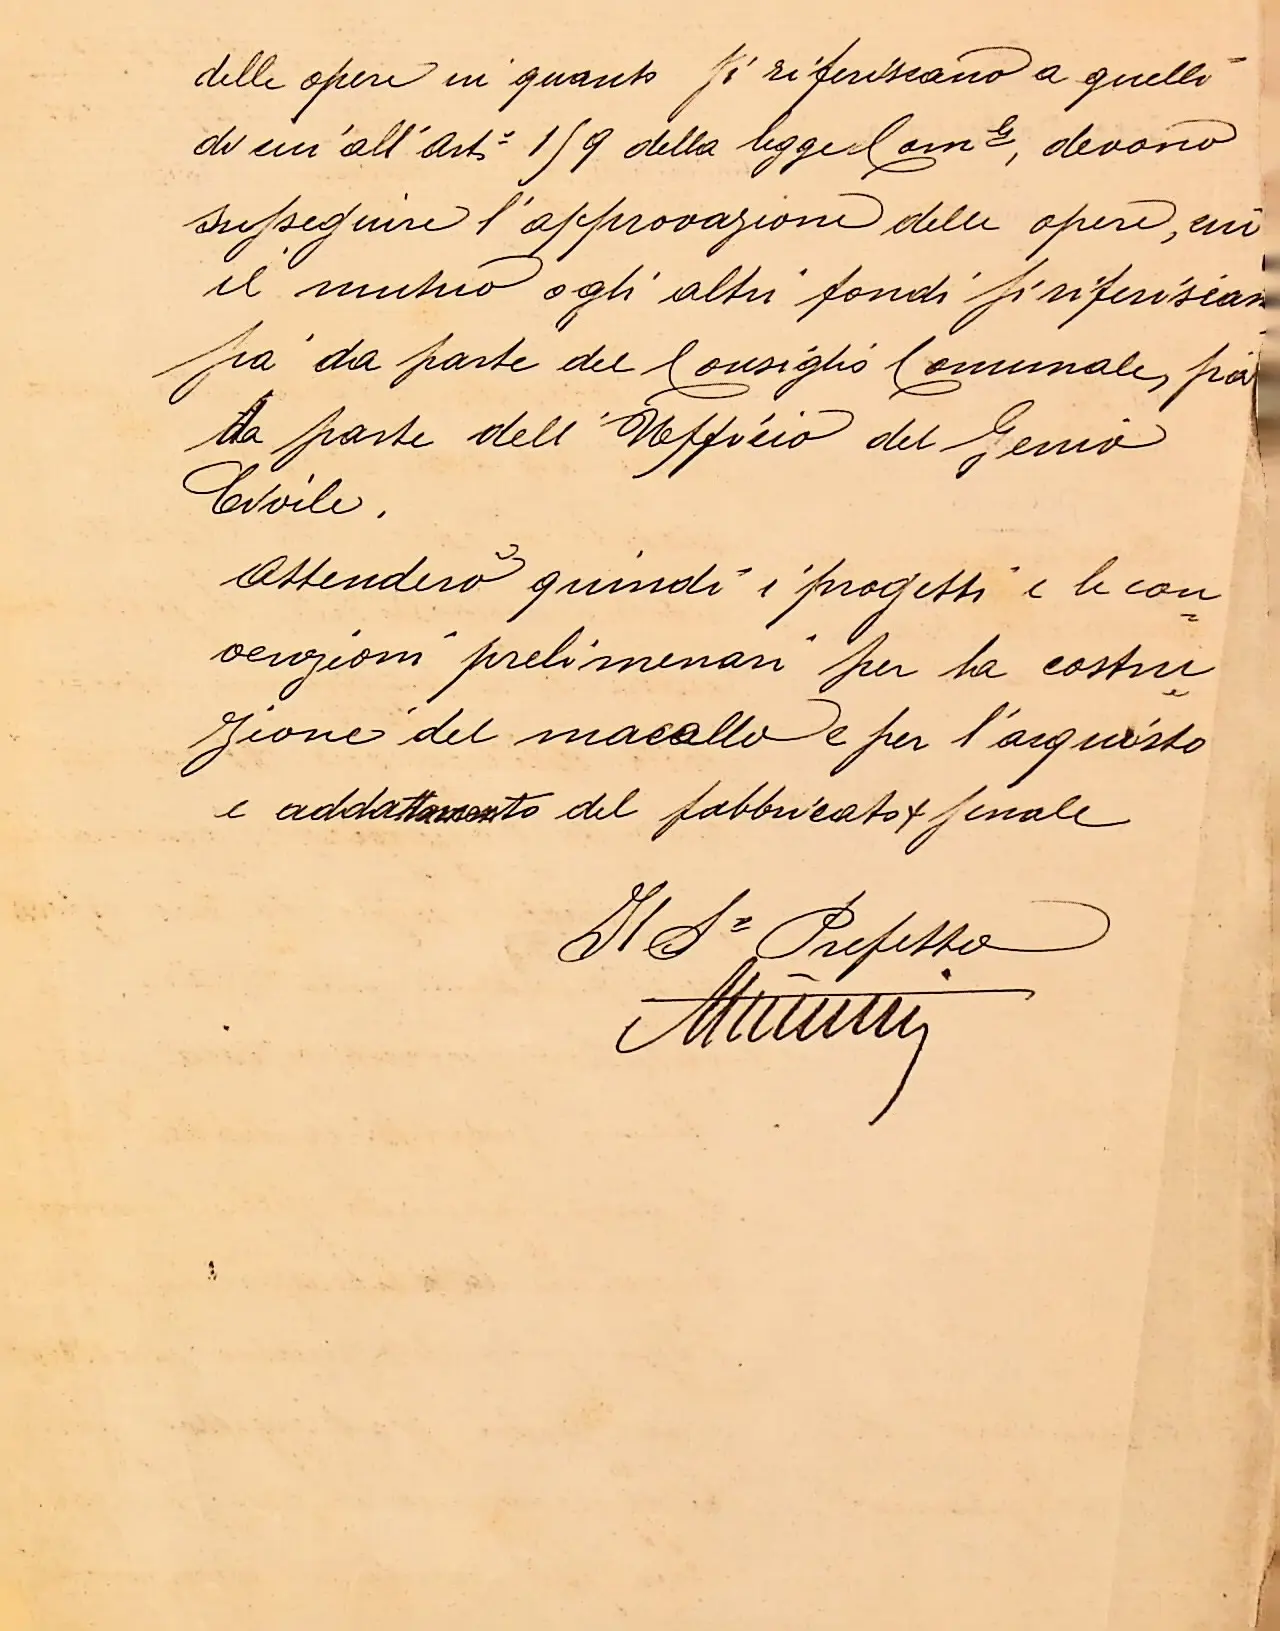 delle opere in quanto si riferiscano a quelle
di cui all'Art.º 159 della legge Com.le, devono
susseguire l'approvazione delle opere, cui
il mutuo o gli altri fondi si riferiscan
sia da parte del Consiglio Comunale, sia
da parte dell'Ufficio del Genio
Civile.
Attenderò quindi i progetti e le con=
venzioni prelimenari per la costru=
zione del macello e per l'acquisto
e addattamento del fabbricato + fenale
Il S. Prefetto